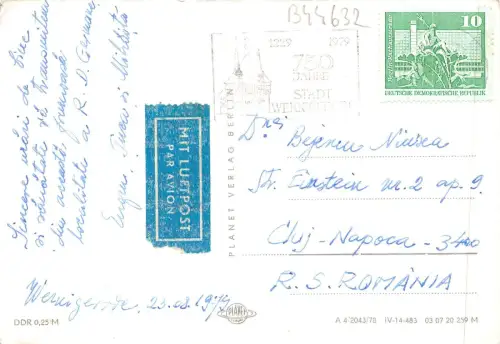 B44632
1229 1979
750
JAHRE
STADT
WERNIGERODE
10
DEUTSCHE DEMOKRATISCHE REPUBLIK
Sincere urări de bine
și sănătate vă transmitem
din această frumoasă
localitate a R. D. Germane
Eugen,
Wernigerode, 23.08.1979
MIT LUFTPOST
PAR AVION
PLANET VERLAG BERLIN
D-nei Bejenu Niusea
Str. Einstein nr. 2 ap. 9.
Cluj-Napoca - 3400
R. S. ROMÂNIA
DDR 0,25 M
PLANET
A 4/2043/78 IV-14-483 03 07 20 259 M